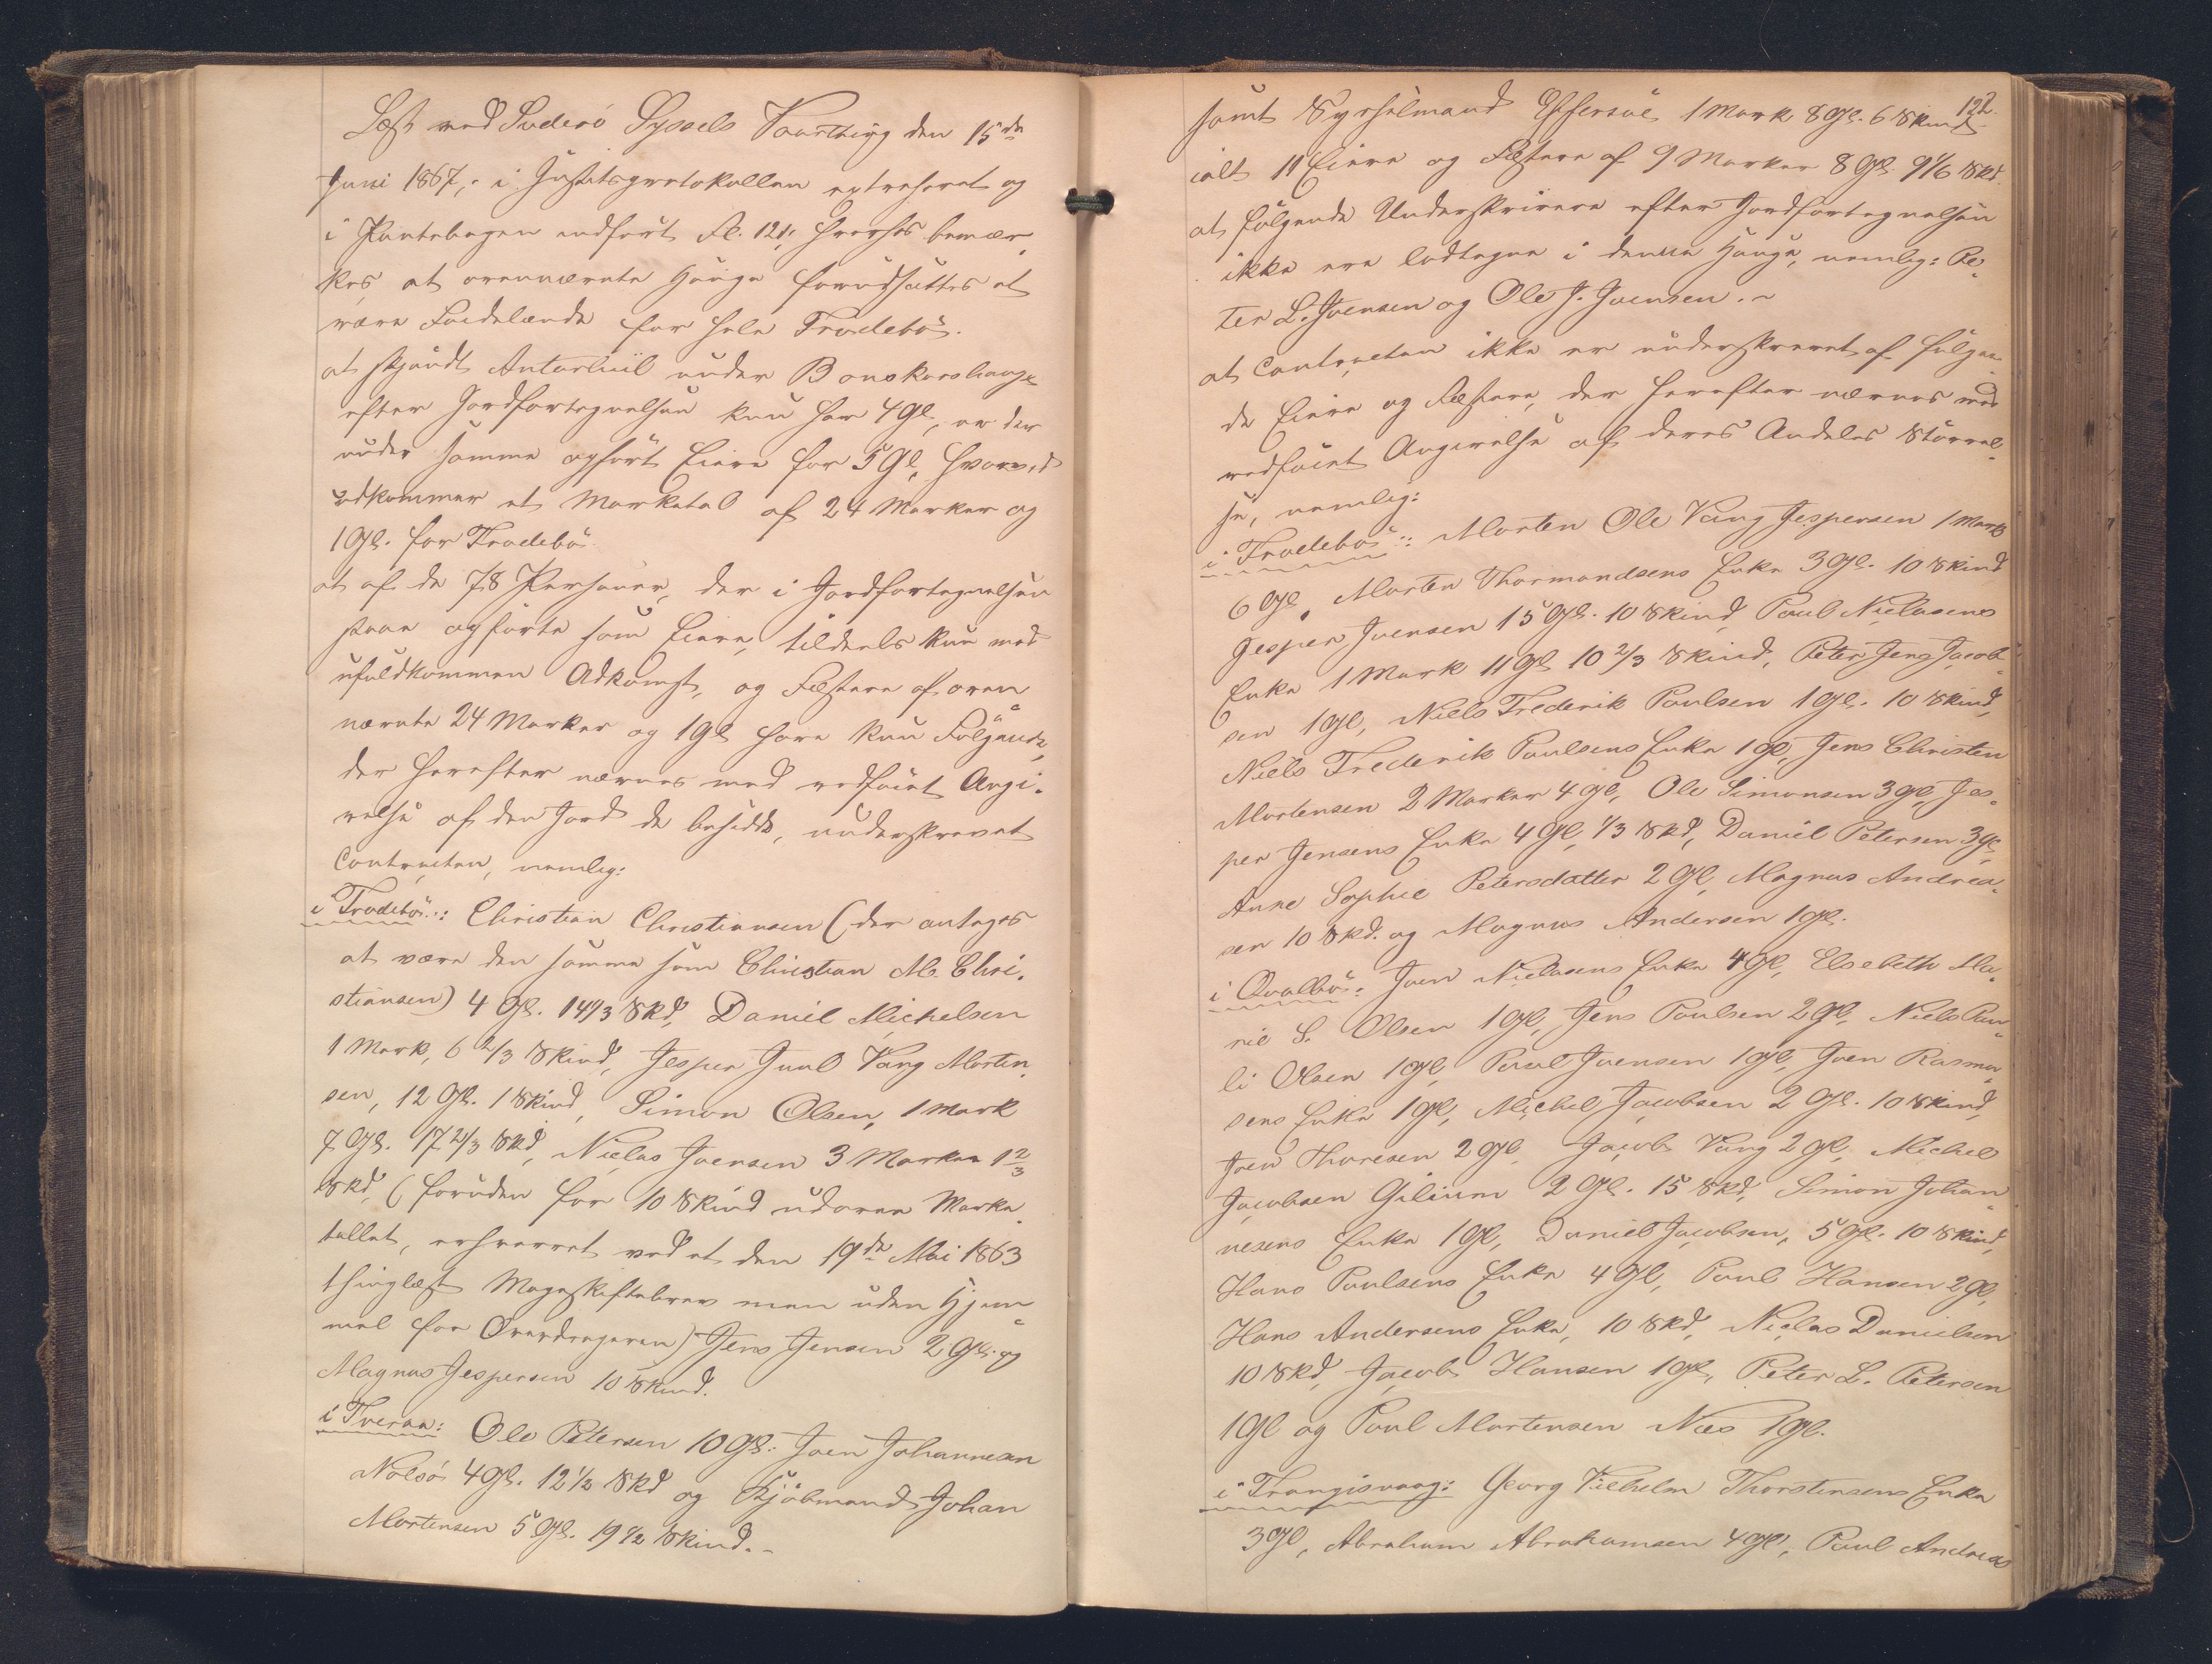 Læst ved Suderø Syssels Vaarthing den 15de
Juni 1867, i Justitsprotokollen extraheret og
i Pantebogen indført Fol. 121, hvorhos bemær-
kes, at ovennævnte Hauge forudsættes at
være Fædelænde for hele Frodebø.
at skjøndt Antarhuil under Bonskorshauge
efter Jordfortegnelsen kun har 4 Gl, er der
under samme opført Eiere for 5 Gl, hvorved
udkommer et Marketal af 24 Marker og
1 Gl. for Frodebø
at af de 78 Personer, der i Jordfortegnelsen
staae opførte som Eiere, tildeels kun med
ufuldkommen Adkomst, og Fæstere af oven
nævnte 24 Marker og 1 Gl have kun Følgende,
der herefter nævnes med vedføiet Angi-
velse af den Jord de besidde, underskrevet
Contracten, nemlig:
i Frodebø: Christian Christiansen (der antages
at være den samme som Christian M. Chri-
stiansen) 4 Gl. 14 1/3 Skd, Daniel Michelsen
1 Mark, 6 2/3 Skind, Jesper Juul Vang Morten-
sen, 12 Gl. 1 Skind, Simon Olsen, 1 Mark
7 Gl. 17 2/3 Skd, Niclas Joensen 3 Marker 1 2/3
Skd, (foruden for 10 Skind udover Marke-
tallet, erhvervet ved et den 19de Mai 1863
thinglæst Mageskiftebrev men uden Hjem-
mel for Overdrageren) Jens Jensen 2 Gl. og
Magnus Jespersen 10 Skind.
i Tveraa: Ole Petersen 10 Gl. Joen Johannesen
Nolsø 4 Gl. 12 1/2 Skd og Kjøbmand Johan
Mortensen 5 Gl. 19 1/2 Skind.
122.
samt Sysselmand Effersøe 1 Mark 8 Gl. 6 Skind
ialt 11 Eiere og Fæstere af 9 Marker 8 Gl. 9 1/6 Skd.
at følgende Underskrivere efter Jordfortegnelsen
ikke ere lodtagne i denne Hauge, nemlig: Pe-
ter L. Joensen og Ole J. Joensen.
at Contracten ikke er underskrevet af følgen-
de Eiere og Fæstere, der herefter nævnes med
vedføiet Angivelse af deres Andeles Størrel-
se, nemlig:
i Frodebø: Morten Ole Vang Jespersen 1 Mark
6 Gl, Morten Thormondsens Enke 3 Gl. 10 Skind
Jesper Joensen 15 Gl. 10 Skind, Poul Niclasens
Enke 1 Mark 11 Gl 10 2/3 Skind, Peter Jens Jacob-
sen 1 Gl, Niels Frederik Poulsen 1 Gl. 10 Skind,
Niels Frederik Poulsens Enke 1 Gl, Jens Christen
Mortensen 2 Marker 4 Gl, Ole Simonsen 3 Gl, Jes-
per Jensens Enke 4 Gl, 1/3 Skd, Daniel Petersen 3 Gl,
Anne Sophie Petersdatter 2 Gl, Magnus Andrea-
sen 10 Skd. og Magnus Andersen 1 Gl.
i Qvalbø: Joen Niclasens Enke 4 Gl, Elsebeth Ma-
rie S. Olsen 1 Gl, Jens Poulsen 2 Gl, Niels Pau-
li Olsen 1 Gl, Poul Joensen 1 Gl, Joen Rasmu-
sens Enke 1 Gl, Michel Jacobsen 2 Gl. 10 Skind,
Joen Thoresen 2 Gl, Jacob Vang 2 Gl, Michel
Jacobsen Gilium 2 Gl. 15 Skd, Simon Johan-
nesens Enke 1 Gl, Daniel Jacobsen, 5 Gl. 10 Skind,
Hans Poulsens Enke 4 Gl, Poul Hansen 2 Gl,
Hans Andersens Enke, 10 Skd, Niclas Danielsen
10 Skd, Jacob Hansen 1 Gl, Peter L. Petersen
1 Gl og Poul Mortensen Næs 1 Gl.
i Trangisvaag: Georg Vilhelm Thorstensens Enke
3 Gl, Abraham Abrahamsen 4 Gl, Poul Andreas